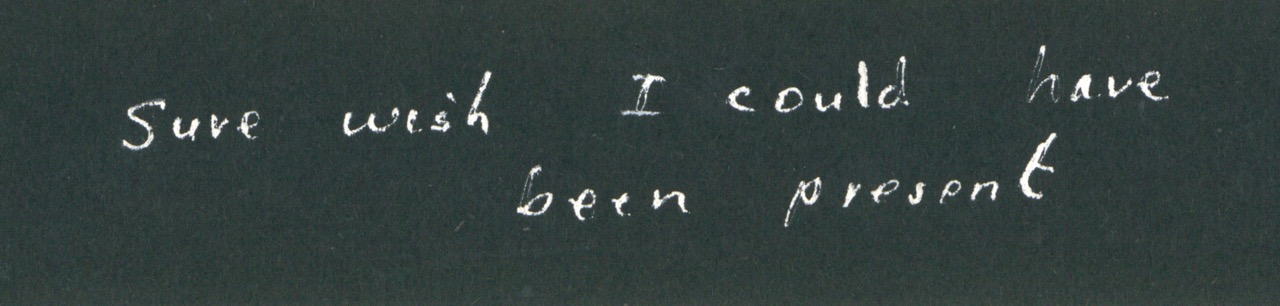 Sure wish I could have
been present